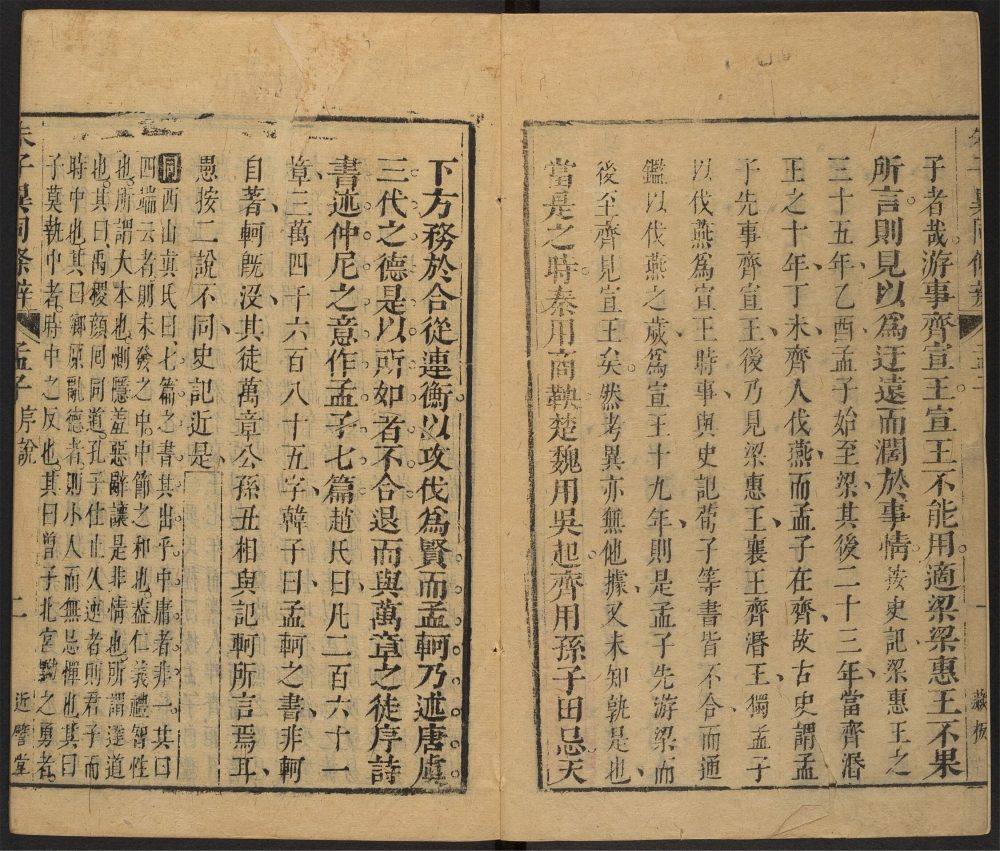 子者哉游事齊宣王宣王不能用適梁梁惠王不果
所言則見以爲迂遠而濶於事情按史記梁惠王之
三十五年乙酉孟子始至梁其後二十三年當齊湣
王之十年丁未齊人伐燕而孟子在齊故古史謂孟
子先事齊宣王後乃見梁惠王襄王齊湣王獨孟子
以伐燕爲宣王時事與史記荀子等書皆不合而通
鑑以伐燕之歲爲宣王十九年則是孟子先游梁而
後至齊見宣王矣然考異亦無他據又未知孰是也
當是之時秦用商鞅楚魏用吳起齊用孫子田忌天
藏板
下方務於合從連衡以攻伐爲賢而孟軻乃述唐虞
三代之德是以所如者不合退而與萬章之徒序詩
書述仲尼之意作孟子七篇趙氏曰凡二百六十一
章三萬四千六百八十五字韓子曰孟軻之書非軻
自著軻既沒其徒萬章公孫丑相與記軻所言焉耳
愚按二說不同史記近是
同西山真氏曰七篇之書其出乎中庸者非一其曰
四端云者則未發之中中節之和也蓋仁義禮智性
也所謂大本也惻隱羞惡辭讓是非情也所謂達道
也其曰禹稷顔回同道孔子仕止久速者則君子而
時中也其曰鄉原亂德者則小人而無忌憚也其曰
子莫執中者時中之反也其曰曾子北宮黝之勇者
朱子異同條辨 孟子 序說 二 近譬堂